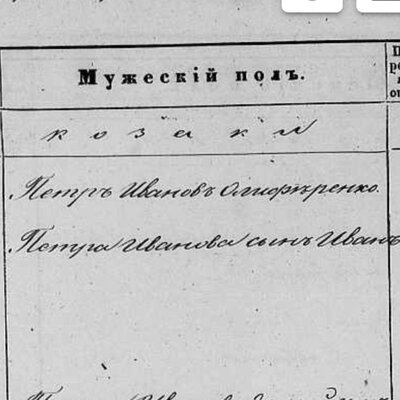 Мужескій полъ.
козаки
Петръ Ивановъ Олифѣренко.
Петра Иванова сынъ Иванъ